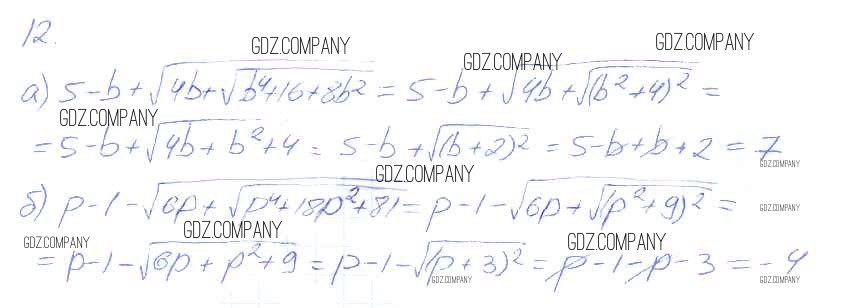 12.
GDZ.COMPANY GDZ.COMPANY GDZ.COMPANY
а) 5-b+√(4b+√(b⁴+16+8b²)) = 5-b+√(4b+√((b²+4)²)) =
GDZ.COMPANY
= 5-b+√(4b+b²+4) = 5-b+√((b+2)²) = 5-b+b+2 = 7
GDZ.COMPANY GDZ.COMPANY
б) p-1-√(6p+√(p⁴+18p²+81)) = p-1-√(6p+√((p²+9)²)) =
GDZ.COMPANY
GDZ.COMPANY GDZ.COMPANY GDZ.COMPANY
= p-1-√(6p+p²+9) = p-1-√((p+3)²) = p-1-p-3 = -4
GDZ.COMPANY GDZ.COMPANY